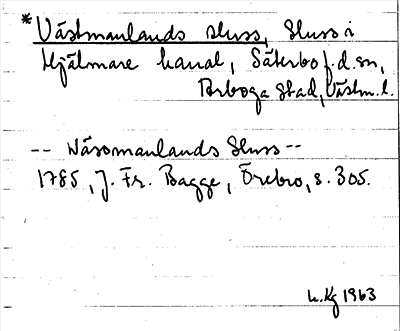 *Västmanlands sluss, Sluss i
Hjälmare kanal, Säterbo f.d.sn,
Arboga stad, Västm.l.
-- Wäsomanlands Sluss --
1785, J. Fr. Bagge, Örebro, s. 305.
L.Kg 1963